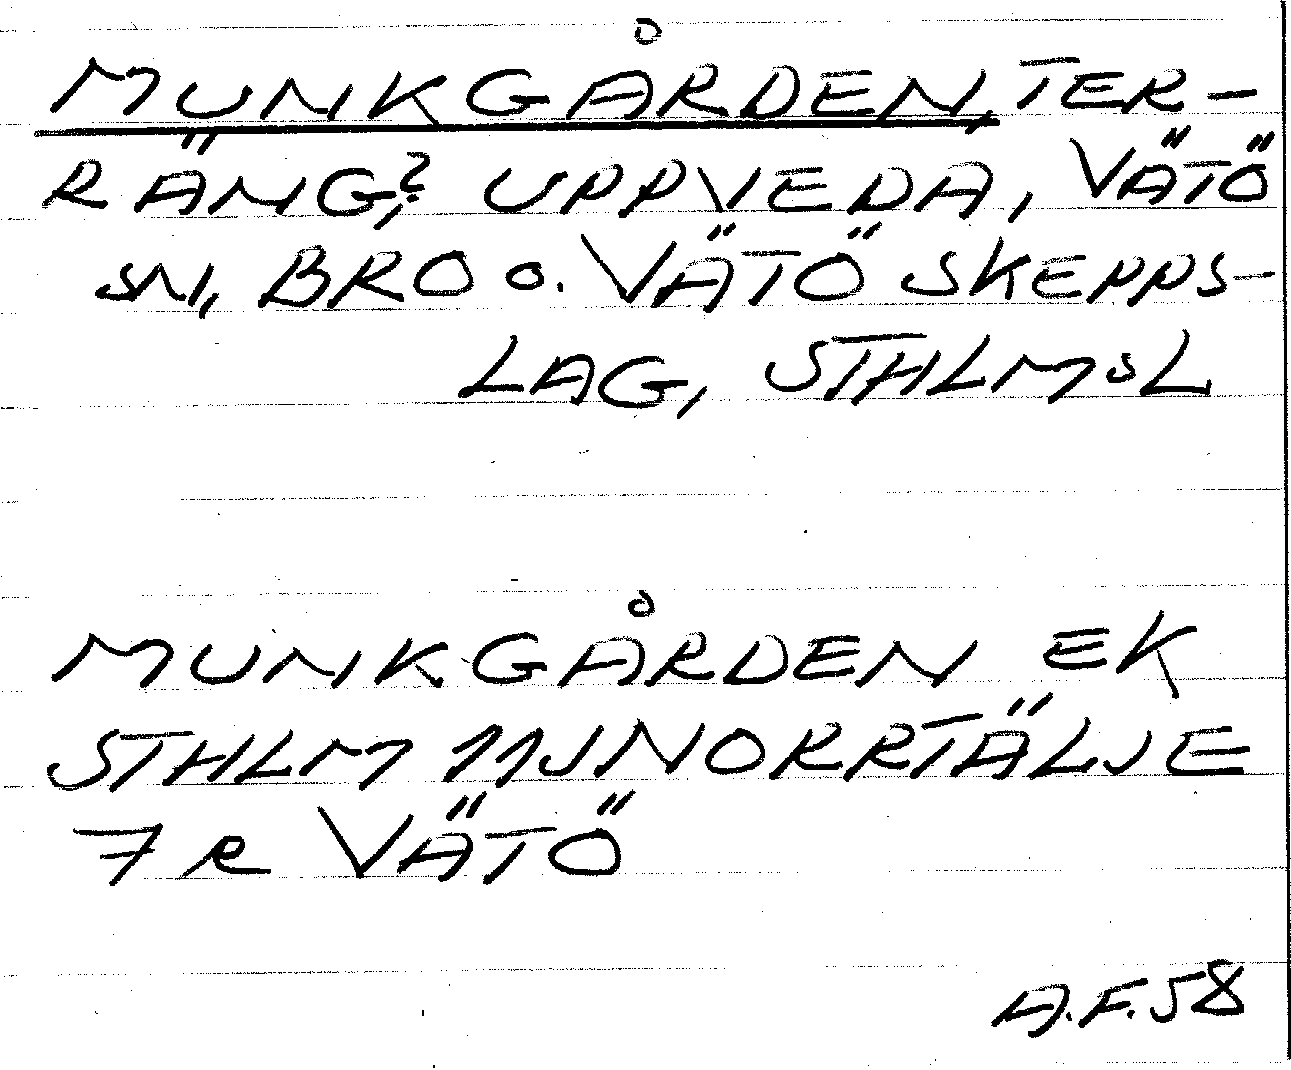 MUNKGÅRDEN, TER-
RÄNG?, UPPVEDA, VÄTÖ
SN, BRO O. VÄTÖ SKEPPS-
LAG, STHLMSL
MUNKGÅRDEN EK
STHLM 11J NORRTÄLJE
7 R VÄTÖ
A.F. 58